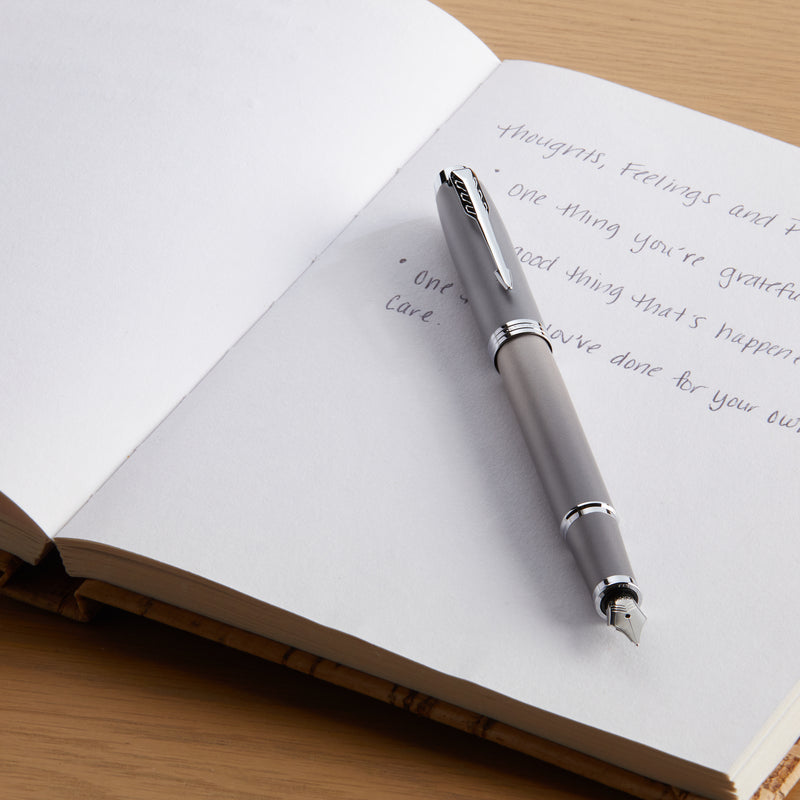 thoughts, Feelings and
• One thing you're gratefu
good thing that's happene
• One you've done for your own
care.